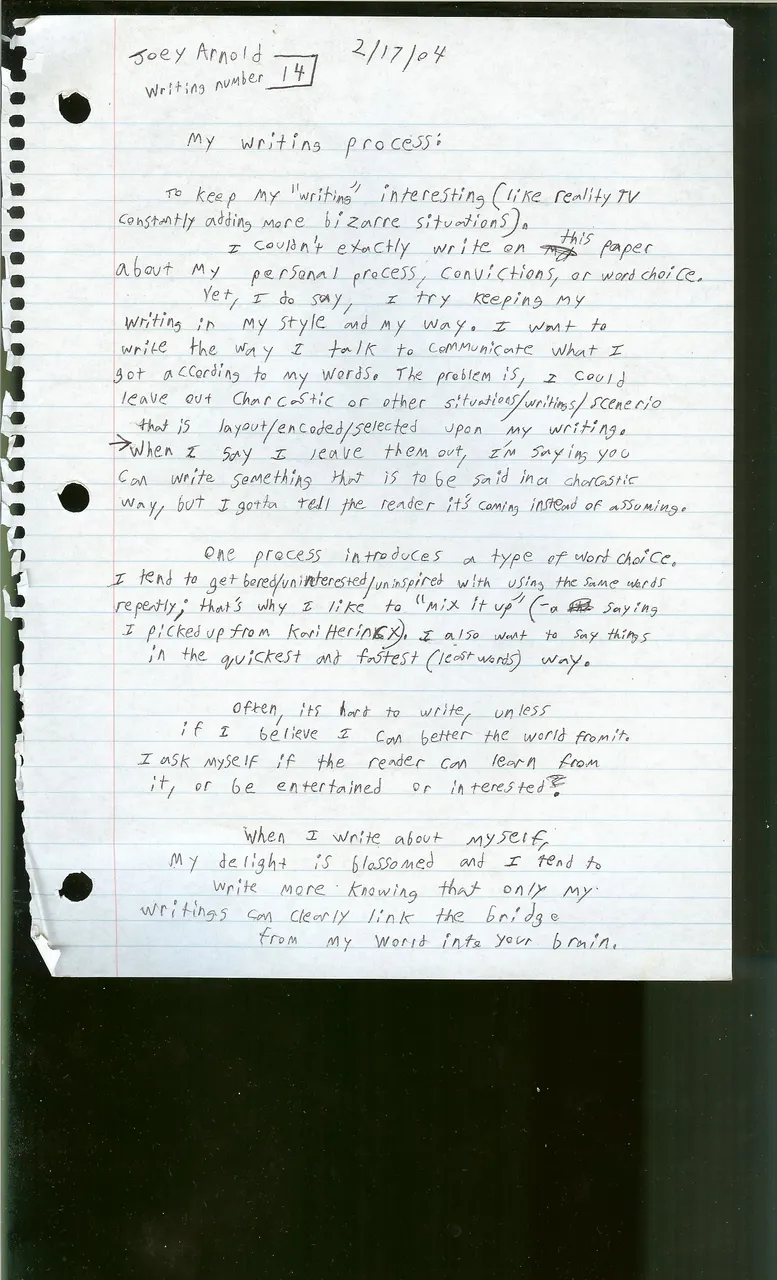 Joey Arnold 2/17/04
Writing number 14
My writing process:
To keep my "writing" interesting (like reality TV
constantly adding more bizarre situations).
I couldn't exactly write on this paper
about my personal process, convictions, or word choice.
Yet, I do say, I try keeping my
writing in my style and my way. I want to
write the way I talk to communicate what I
got according to my words. The problem is, I could
leave out Charcastic or other situations/writings/scenerio
that is layout/encoded/selected upon my writing.
→When I say I leave them out, I'm saying you
can write something that is to be said in a charcastic
way, but I gotta tell the reader it's coming instead of assuming.
One process introduces a type of word choice.
I tend to get bored/uninterested/uninspired with using the same words
repently; that's why I like to "mix it up" (-a saying
I picked up from Kari Herinckx). I also want to say things
in the quickest and fastest (least words) way.
Often, its hard to write, unless
if I believe I can better the world from it.
I ask myself if the reader can learn from
it, or be entertained or interested?
When I write about myself,
my delight is blossomed and I tend to
write more knowing that only my
writings can clearly link the bridge
from my world into your brain.